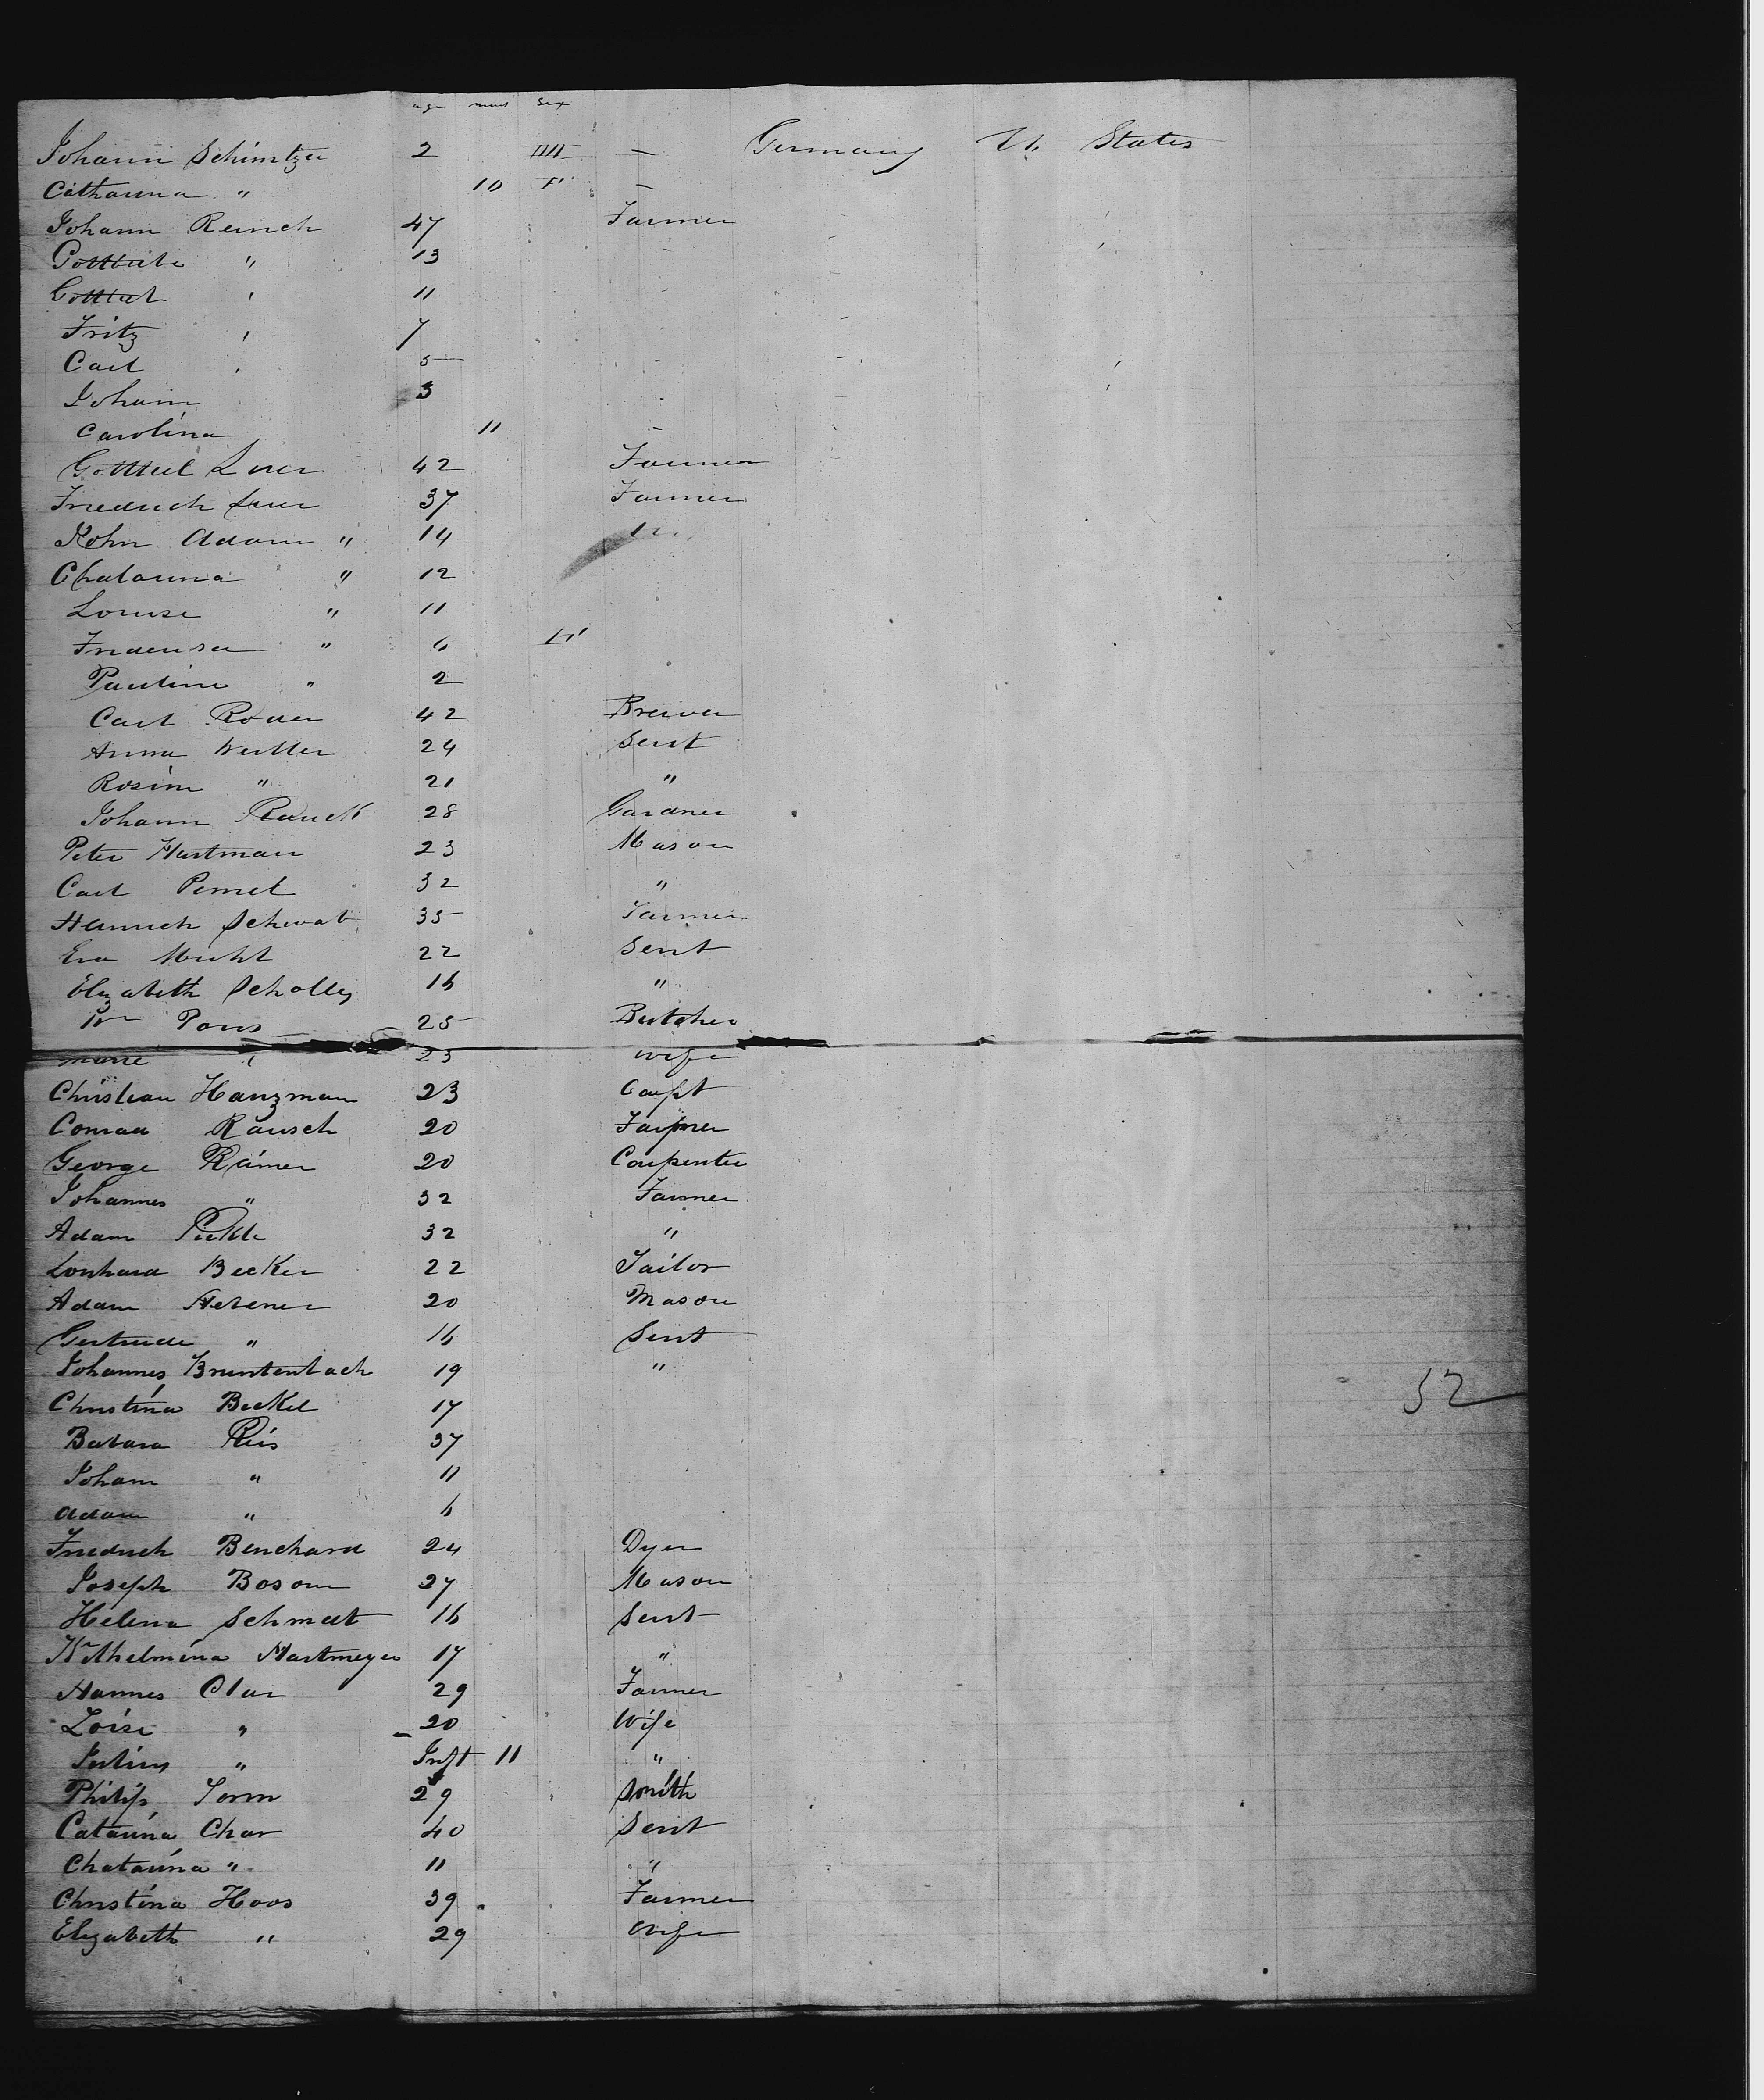 age mos Sex
Johann Schintzer 2 — Germany U. States
Catharina " 10 F —
Johann Reinch 47 Farmer
Gottlieb " 13
Gottlieb " 11
Fritz " 7
Carl " 5
Johann 3
Carolina 11
Gottlieb Luer 42 Farmer
Friedrich Luer 37 Farmer
John Adam " 14
Chatarina " 12
Louise " 11
" 6
Pauline " 2
Carl Roder 42 Brewer
Anna 24 Sevt
Rosine " 21 "
Johann 28 Gardner
Peter Hartman 23 Mason
Carl 32 "
Heinrich Schwab 35 Farmer
Eva 22 Sevt
Elizabeth Scholly 16 "
Wm Pons 25 Butcher
Marie " 23 Wife
Christian Hanzman 23 Carpt
Conrad Rausch 20 Farmer
George Rämer 20 Carpenter
Johannes " 32 Farmer
Adam 32 "
Lonhard Becker 22 Tailor
Adam 20 Mason
Gertrude " 16 Sevt
Johannes Bruntenbach 19 "
Christina Beckel 17
Babara Reis 37
Joham " 11
Adam " 6
Friedrich Benchard 24 Dyer
Joseph Bosom 27 Mason
Helena Schmdt 16 Sevt
Wilhelmina Hartmeyer 17 "
Hannes Clar 29 Farmer
Loise " 20 Wife
Julius " Inft 11 "
Philip Sorm 29 Smith
Catarina Char 40 Sevt
Chatarina " 11 "
Christina Hoos 39 Farmer
Elizabeth " 29 Wife
52